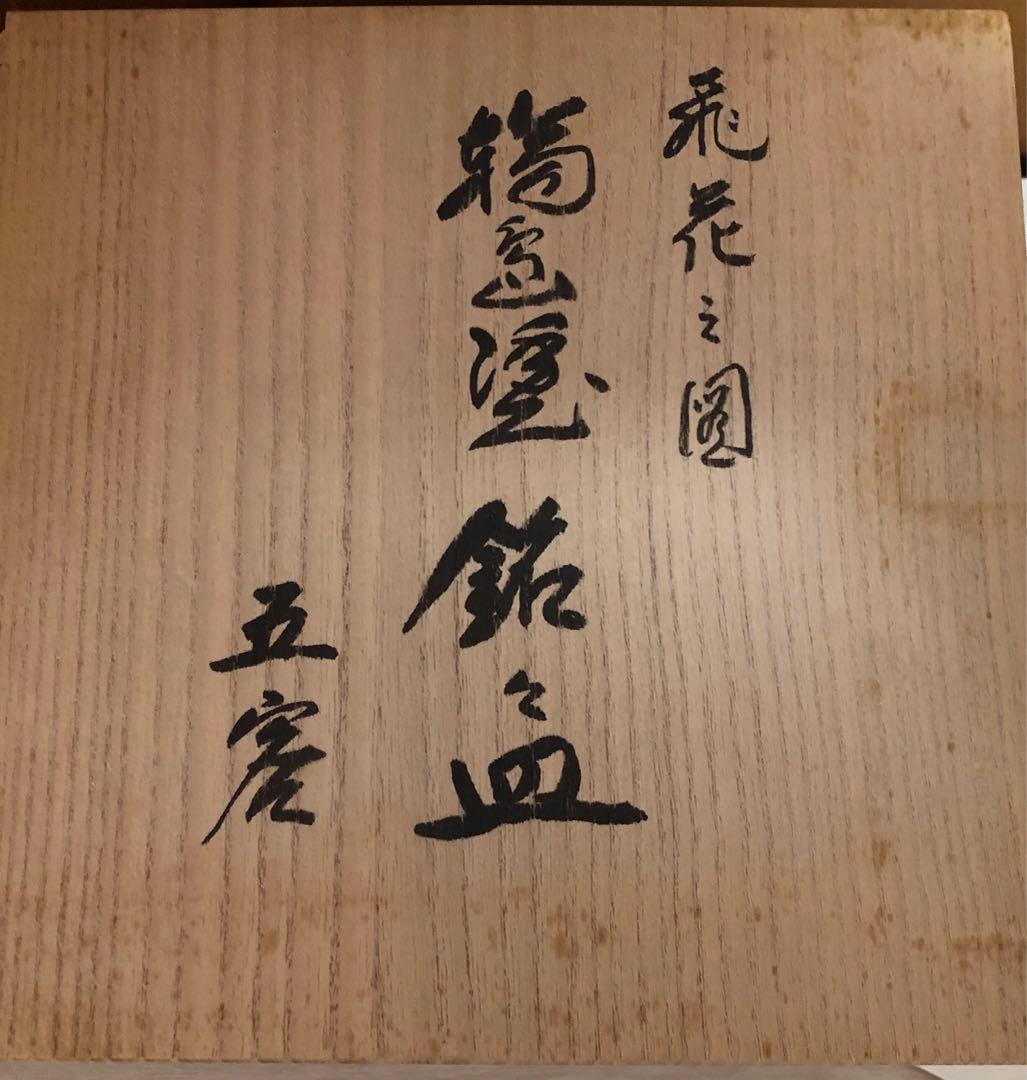 飛花之図
輪島塗 銘々皿
五客